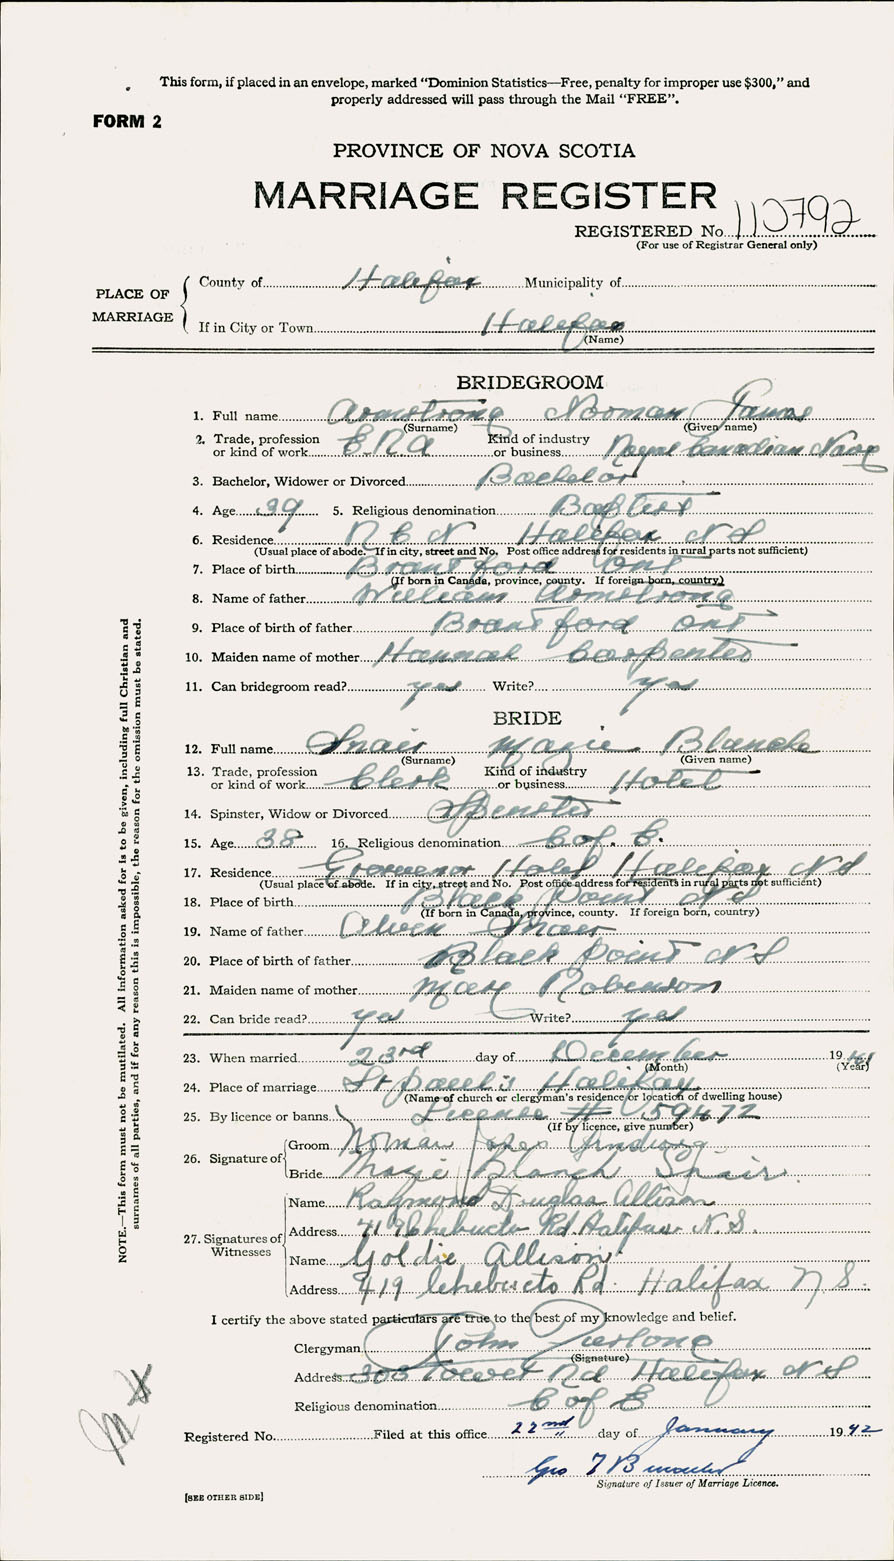 This form, if placed in an envelope, marked “Dominion Statistics—Free, penalty for improper use $300,” and
properly addressed will pass through the Mail “FREE”.
FORM 2
PROVINCE OF NOVA SCOTIA
MARRIAGE REGISTER
REGISTERED No. 110792
(For use of Registrar General only)
PLACE OF MARRIAGE
County of Halifax Municipality of
If in City or Town Halifax
(Name)
BRIDEGROOM
1. Full name Armstrong Norman James
(Surname) (Given name)
2. Trade, profession or kind of work E.R.A Kind of industry or business Royal Canadian Navy
3. Bachelor, Widower or Divorced Bachelor
4. Age 39 5. Religious denomination Baptist
6. Residence R C N Halifax N S
(Usual place of abode. If in city, street and No. Post office address for residents in rural parts not sufficient)
7. Place of birth Brantford Ont
(If born in Canada, province, county. If foreign born, country)
8. Name of father William Armstrong
9. Place of birth of father Brantford Ont
10. Maiden name of mother Hannah Carpenter
11. Can bridegroom read? yes Write? yes
BRIDE
12. Full name Snair Mazie Blanche
(Surname) (Given name)
13. Trade, profession or kind of work Clerk Kind of industry or business Hotel
14. Spinster, Widow or Divorced Spinster
15. Age 38 16. Religious denomination C of. E.
17. Residence Grosvenor Hotel Halifax N S
(Usual place of abode. If in city, street and No. Post office address for residents in rural parts not sufficient)
18. Place of birth Black Point N S
(If born in Canada, province, county. If foreign born, country)
19. Name of father Alven Snair
20. Place of birth of father Black Point N S
21. Maiden name of mother Mary Robinson
22. Can bride read? yes Write? yes
23. When married 23rd day of December 1941
(Month) (Year)
24. Place of marriage St Paul's Halifax
(Name of church or clergyman's residence or location of dwelling house)
25. By licence or banns License # 59472
(If by licence, give number)
26. Signature of
Groom Norman James Armstrong
Bride Mazie Blanch Snair.
27. Signatures of Witnesses
Name Raymond Douglas Allison
Address 419 Chebucto Rd. Halifax N.S.
Name Goldie Allison
Address 419 Chebucto Rd. Halifax N.S.
I certify the above stated particulars are true to the best of my knowledge and belief.
Clergyman John Furlong
(Signature)
Address 303 Tower Rd Halifax N S
Religious denomination C of E
Registered No. Filed at this office 22nd day of January 1942
Geo T B
Signature of Issuer of Marriage Licence.
[SEE OTHER SIDE]
NOTE.—This form must not be mutilated. All information asked for is to be given, including full Christian and
surnames of all parties, and if for any reason this is impossible, the reason for the omission must be stated.